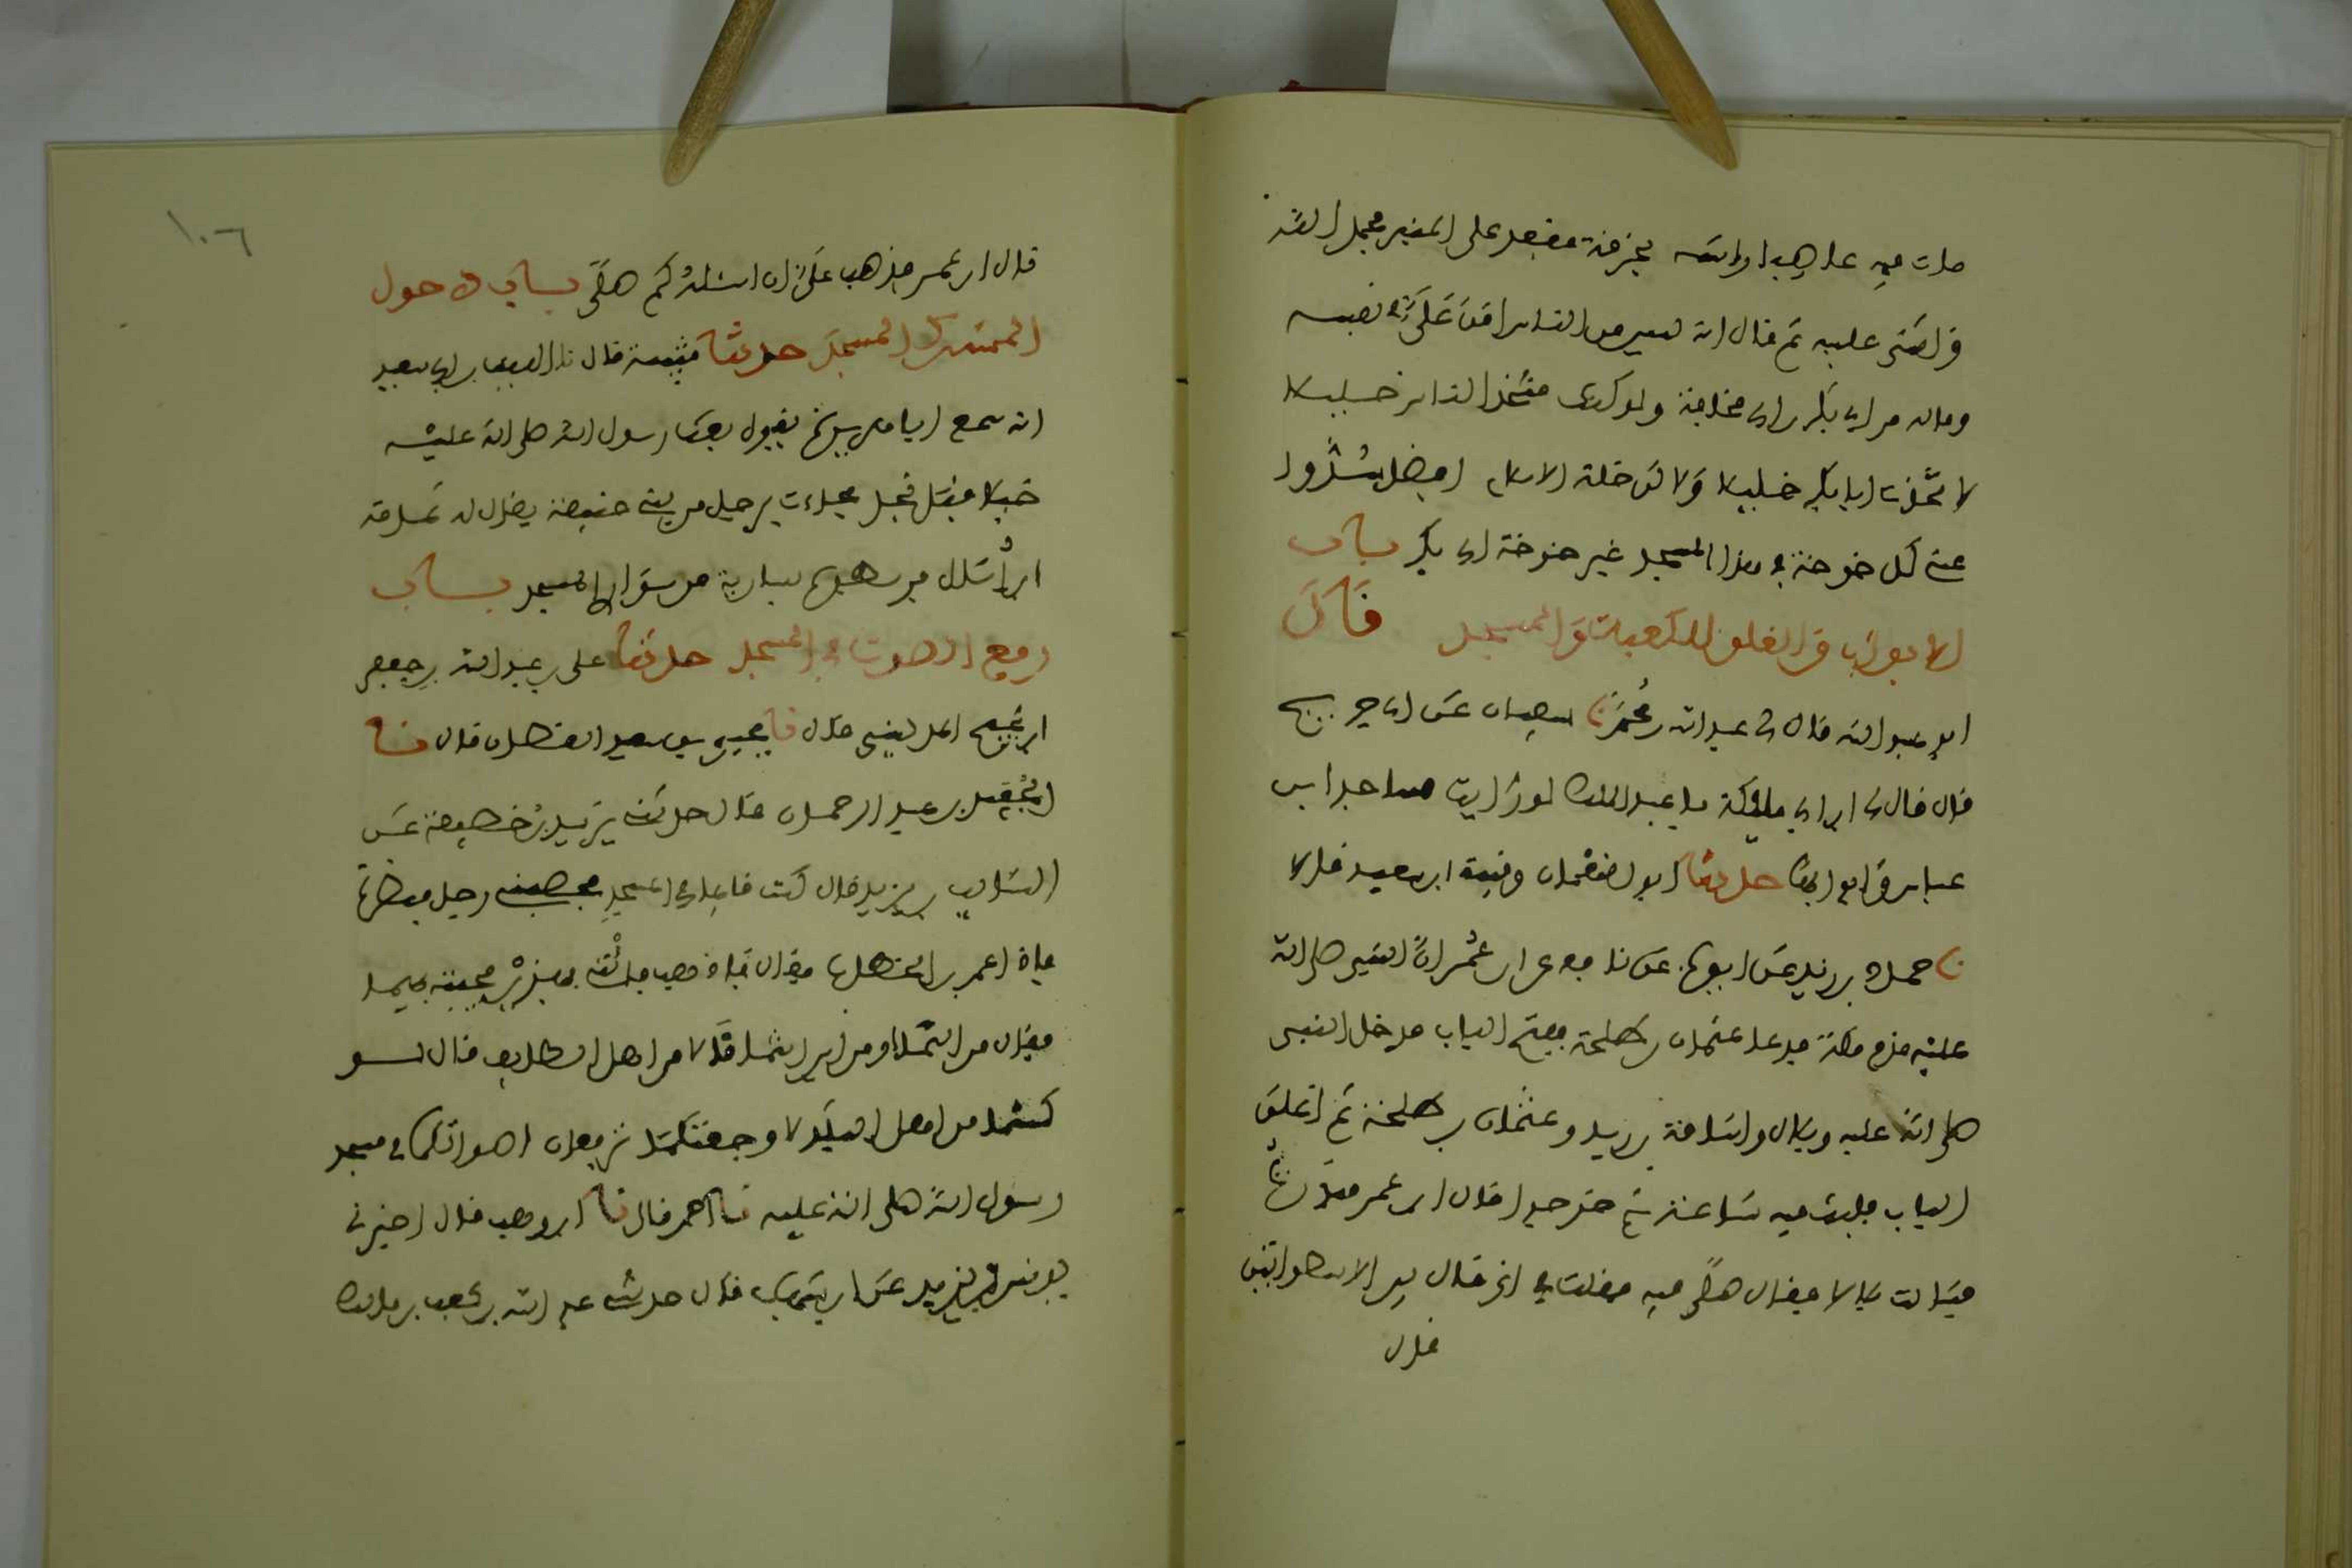 مات فيه عاصبا راسه بخرقة فقعد على المنبر فحمد الله
واثنى عليه ثم قال انه ليس من الناس امن علي في نفسه
وماله من ابي بكر بن ابي قحافة ولو كنت متخذا من الناس خليلا
لاتخذت ابا بكر خليلا ولاكن خلة الاسلام افضل سدوا
عني كل خوخة في هذا المسجد غير خوخة ابي بكر باب
الابواب والغلق للكعبة والمسجد قال
ابو عبد الله قال لي عبد الله بن محمد نا سفيان عن ابن جريج
قال قال لي ابن ابي مليكة يا عبد الملك لو رايت مساجد ابن
عباس وابوابها حدثنا ابو النعمان وقتيبة ابن سعيد قالا
نا حماد بن زيد عن ايوب عن نافع عن ابن عمر ان النبي صلى الله
عليه قدم مكة فدعا عثمان بن طلحة ففتح الباب فدخل النبي
صلى الله عليه وبلال واسامة بن زيد وعثمان بن طلحة ثم اغلق
الباب فلبث فيه ساعة ثم خرجوا قال ابن عمر فبدرت
فسالت بلالا فقال صلى فيه فقلت في اي قال بين الاسطوانتين
قال
١٠٦
قال ابن عمر فذهب علي ان اسئله كم صلى باب دخول
المشرك المسجد حدثنا قتيبة قال نا الليث عن سعيد بن ابي سعيد
انه سمع ابا هريرة يقول بعث رسول الله صلى الله عليه
خيلا قبل نجد فجاءت برجل من بني حنيفة يقال له ثمامة
ابن اثال فربطوه بسارية من سواري المسجد باب
رفع الصوت في المسجد حدثنا علي بن عبد الله بن جعفر
ابن نجيح المديني قال نا يحيى بن سعيد القطان قال نا
الجعيد بن عبد الرحمان قال حدثني يزيد بن خصيفة عن
السايب بن يزيد قال كنت قايما في المسجد فحصبني رجل فنظرت
فاذا عمر بن الخطاب فقال اذهب فاتني بهذين فجئته بهما
فقال من انتما او من اين انتما قالا من اهل الطايف قال لو
كنتما من اهل البلد لاوجعتكما ترفعان اصواتكما في مسجد
رسول الله صلى الله عليه نا احمد قال نا ابن وهب قال اخبرني
يونس بن يزيد عن ابن شهاب قال حدثني عبد الله بن كعب بن مالك